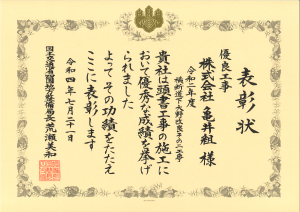 表彰状
優良工事
株式会社 亀井組 様
令和二年度
横断道下大野改良その二工事
貴社は頭書工事の施工に
おいて優秀な成績を挙げ
られました
よって その功績をたたえ
ここに表彰します
令和四年七月二十一日
国土交通省四国地方整備局長 荒瀬美和